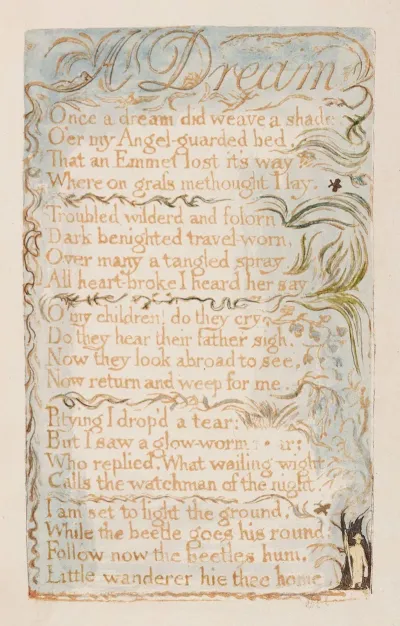 A Dream
Once a dream did weave a shade,
O'er my Angel-guarded bed,
That an Emmet lost it's way
Where on graſs methought I lay.
Troubled wilderd and folorn
Dark benighted travel-worn,
Over many a tangled spray
All heart-broke I heard her say.
O my children! do they cry,
Do they hear their father sigh.
Now they look abroad to see,
Now return and weep for me.
Pitying I drop'd a tear:
But I saw a glow-worm
Who replied. What wailing wight
Calls the watchman of the night.
I am set to light the ground,
While the beetle goes his round
Follow now the beetles hum,
Little wanderer hie thee home.